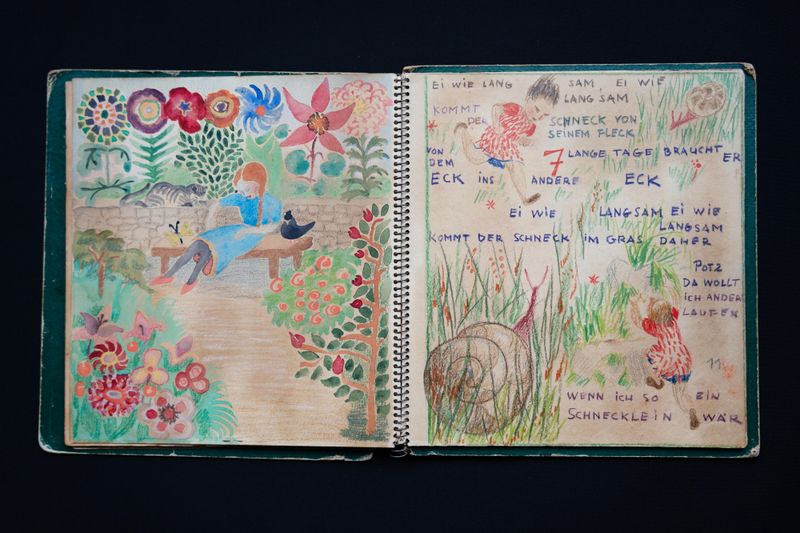 EI WIE LANG SAM, EI WIE
LANGSAM
KOMMT DER SCHNECK VON
SEINEM FLECK
VON DEM 7 LANGE TAGE BRAUCHT ER
ECK INS ANDERE ECK
EI WIE LANGSAM EI WIE
LANGSAM
KOMMT DER SCHNECK IM GRAS DAHER
POTZ
DA WOLLT
ICH ANDERS
LAUFEN
11
WENN ICH SO EIN
SCHNECKLEIN WÄR